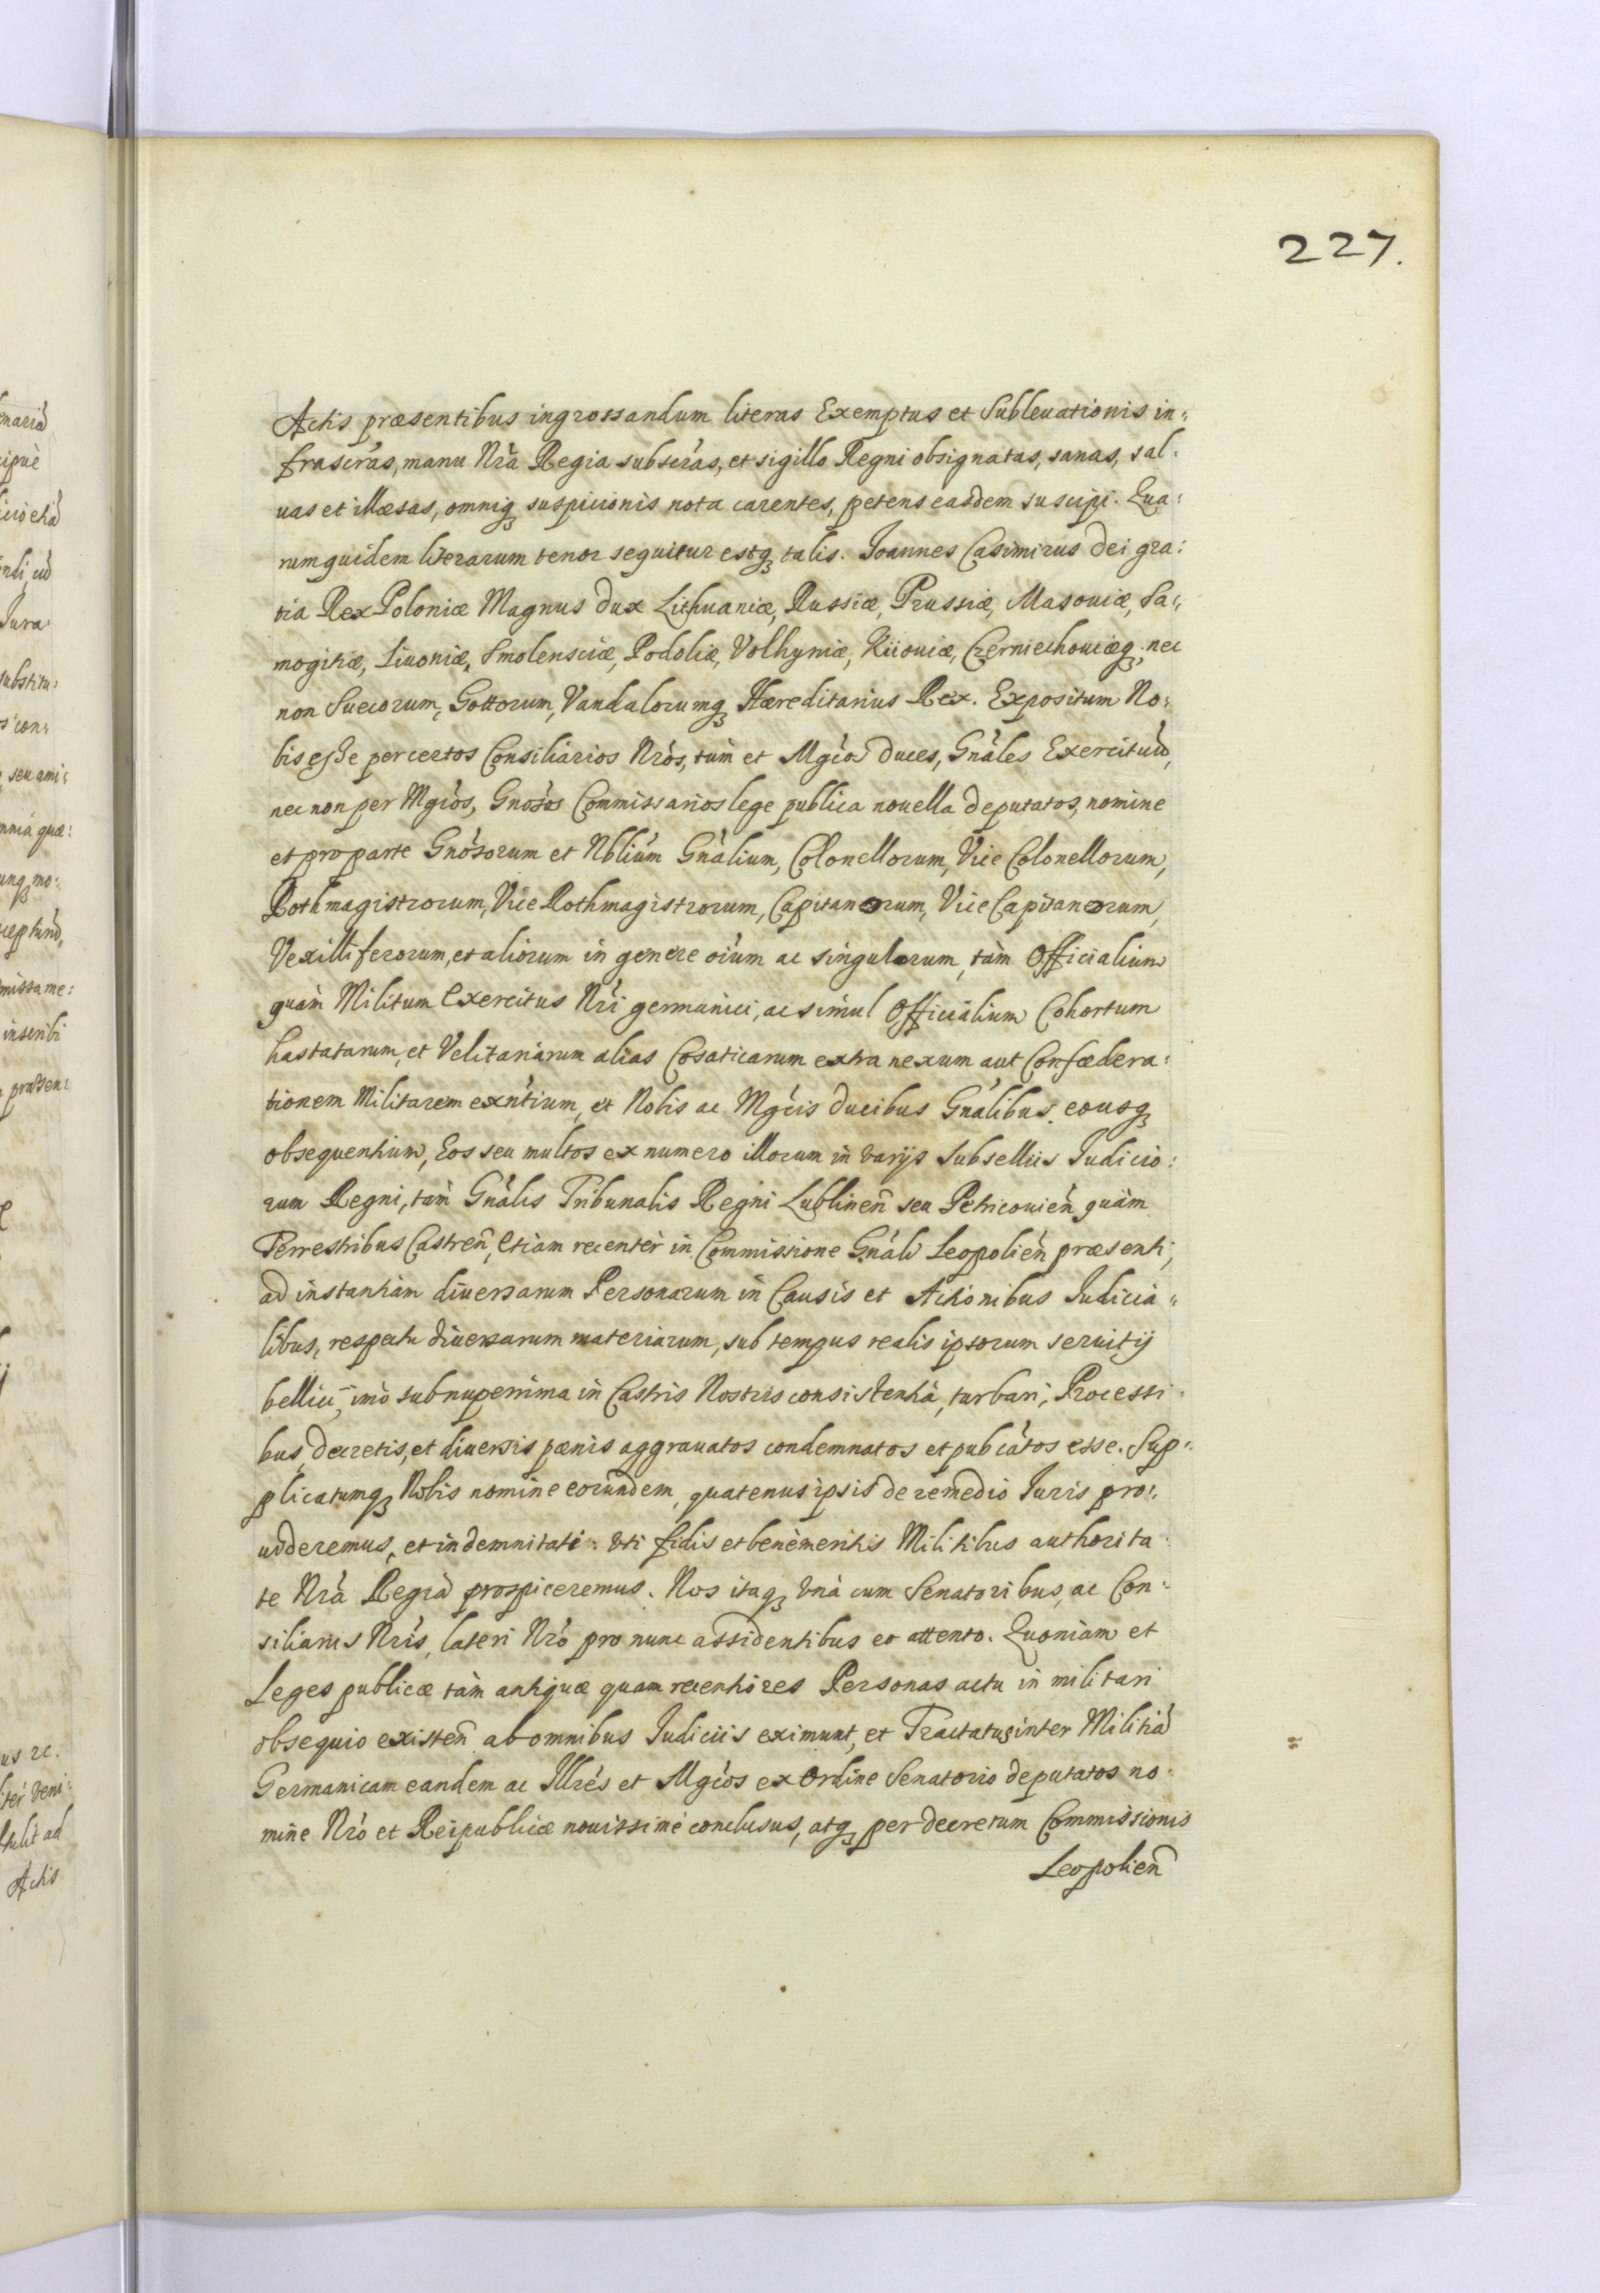 227.
Actis præsentibus ingrossandum literas Exemptus et Subleuationis in„
frascr̀as, manu Nr̀a Regia subscr̀as, et sigillo Regni obsignatas, sanas, sal„
uas et illæsas, omniq̨ suspicionis nota carentes, petens easdem suscipi. Qua:
rum quidem literarum tenor sequitur estq̨ talis. Joannes Casimirus Dei gra:
tia Rex Poloniæ Magnus Dux Lithuaniæ, Russiæ, Prussiæ, Masouiæ, Sa„
mogitiæ, Liuoniæ, Smolensciæ, Podoliæ, Volhyniæ, Kiiouiæ, Czerniechouiæq̨, nec
non Suecorum, Gottorum, Vandalorumq̨ Hæreditarius Rex. Expositum No:
bis esse per certos Consiliarios Nr̀os, tùm et Mgc̀os Duces, Gnàles Exercituũ,
nec non per Mgc̀os, Gnòsos Commissarios lege publica nouella deputatos, nomine
et pro parte Gnòsorum et Nbliùm Gnàlium, Colonellorum, Vice Colonellorum,
Rothmagistrorum, Vice Rothmagistrorum, Capitaneorum, Vice Capitaneorum,
Vexilliferorum, et aliorum in genere oìum ac singulorum, tàm Officialium
quàm Militum Exercitus Nr̀i germanici, ac simul Officialium Cohortum
hastatarum, et Velitariarum alias Cosaticarum extra nexum aut Confœdera:
tionem Militarem exǹtium, et Nobis ac Mgc̀is Ducibus Gnàlibus eousq̨
obsequentium, Eos seu multos ex numero illorum in varijs Subselliis Judicio:
rum Regni, tàm Gnàlis Tribunalis Regni Lublineñ seu Petricouieñ quàm
Terrestribus Castreñ, Etiam recentèr in Commissione Gnàli Leopolieñ præsenti,
ad instantiàm diuersarum Personarum in Causis et Actionibus Judicia„
libus, respectu diuersarum materiarum, sub tempus realis ipsorum seruitij
bellici, imò sub nuperrima in Castris Nostris consistentià, turbari, Processi„
bus, decretis, et diuersis pænis aggrauatos condemnatos et pubcàtos esse. Sup„
plicatumq̨ Nobis nomine eorundem, quatenus ipsis de remedio Juris pro„
uideremus, et indemnitati uti fidis et benèmeritis Militibus authorita„
te Nr̀a Regià prospiceremus. Nos itaq̨ vnà cum Senatoribus, ac Con:
siliariis Nr̀is, lateri Nr̀o pro nunc assidentibus eo attento. Quoniàm et
Leges publicæ tàm antiquæ quam recentiores Personas actu in militari
obsequio existeñ ab omnibus Judiciis eximunt, et Tractatus inter Militiã
Germanicam eandem ac Illrès et Mgc̀os ex Ordine Senatorio deputatos no„
mine Nr̀o et Reipublicæ nouissimè conclusus, atq̨ per decretum Commissionis
Leopolieñ